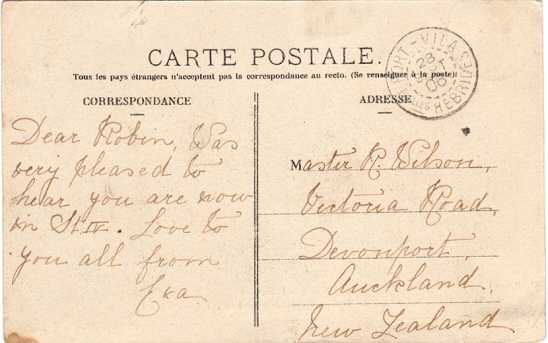 CARTE POSTALE.
Tous les pays étrangers n'acceptent pas la correspondance au recto. (Se renseigner à la poste)
CORRESPONDANCE
Dear Robin, Was
very pleased to
hear you are now
in St IV. Love to
you all from
ADRESSE
Master R. Wilson,
Victoria Road,
Devonport,
Auckland,
New Zealand
PORT-VILA
28
06
HEBRIDES